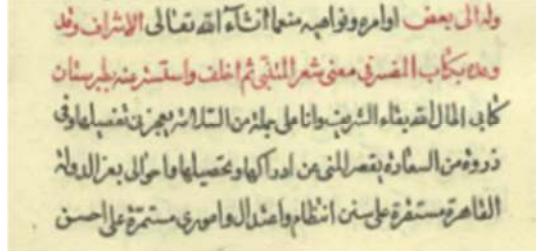 وله الى بعض اوامره ونواهيه منعما انشآء الله تعالى الاشراف وقد
وعده بكتاب المفسر فى معنى شعر المتنبى ثم اخلف واستقر منه بطبرستان
كتابى اطال الله بقاء الشريف وانا على جملة من السلامة يعجز عن تفصيلها وفى
ذروة من السعادة يقصر المنى عن ادراكها وتحصيلها واحوالى بعز الدولة
القاهرة مستقرة على سنن انتظام واعتدال وامورى مستمرة على احسن